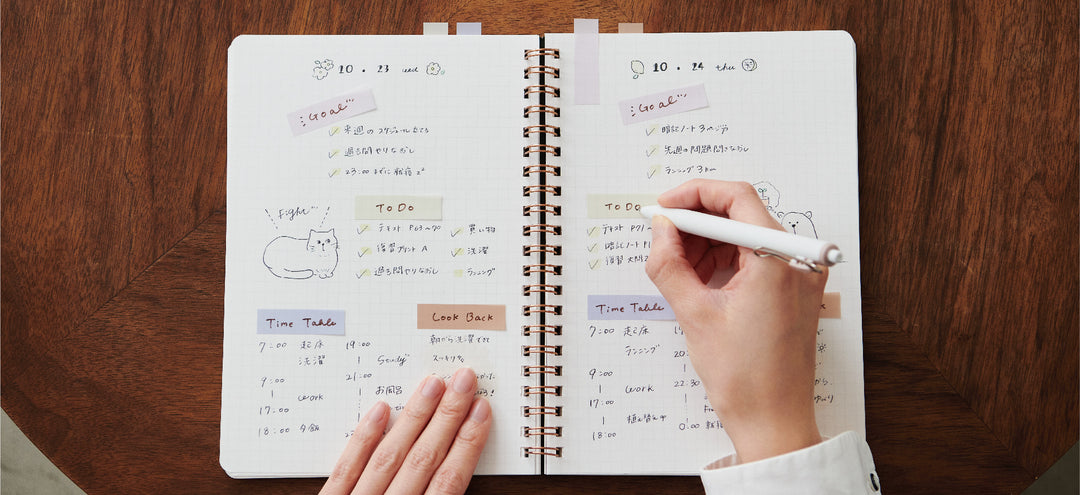 10 . 23 wed
Goal
来週のスケジュール立てる
過去問やりなおし
23:00までに就寝
Fight
ToDo
テキスト P63~70
買い物
復習プリント A
洗濯
過去問やりなおし
ランニング
Time Table
7:00 起床
洗濯
9:00
work
17:00
18:00 夕飯
19:00
Study
21:00
お風呂
Look Back
朝から洗濯できて
スッキリ
10 . 24 thu
Goal
暗記ノート 3ページ
先週の問題聞きなおし
ランニング 3km
ToDo
テキスト P71
暗記ノート P1
復習 大問2
Time Table
7:00 起床
ランニング
9:00
work
17:00
植え替え
18:00
20:
22:30
0:00